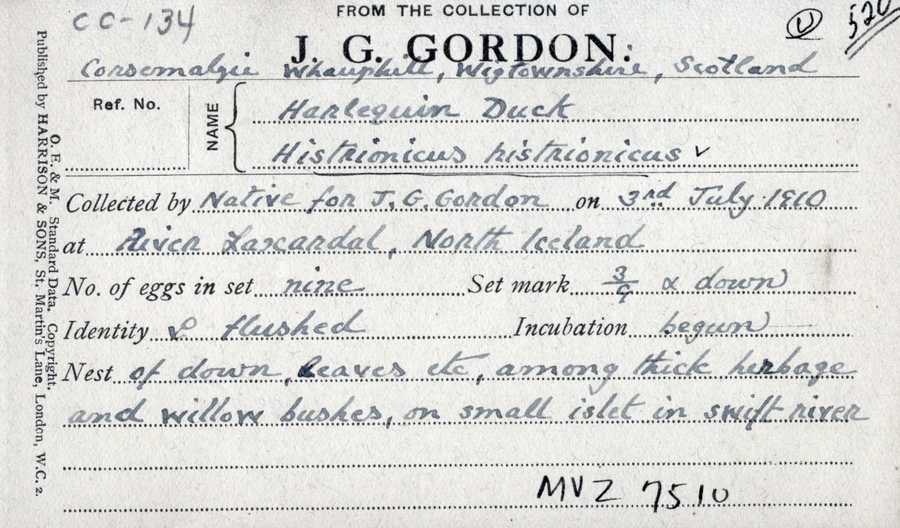 CC-134
FROM THE COLLECTION OF
J. G. GORDON.
U
520
Corsemalzie Whauphill, Wigtownshire, Scotland
Ref. No.
NAME
Harlequin Duck
Histrionicus histrionicus ✓
Collected by Native for J. G. Gordon on 3rd July 1910
at River Laxardal, North Iceland
No. of eggs in set nine Set mark 3/9 & down
Identity flushed Incubation begun
Nest of down, leaves etc, among thick herbage
and willow bushes, on small islet in swift river
MVZ 7510
O. E. & M. Standard Data. Copyright.
Published by HARRISON & SONS, St. Martin's Lane, London, W.C. 2.